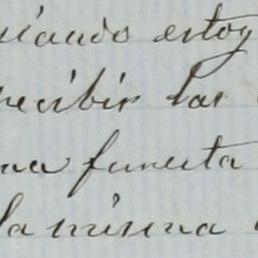 estoy
recibir las
una funesta
la misma